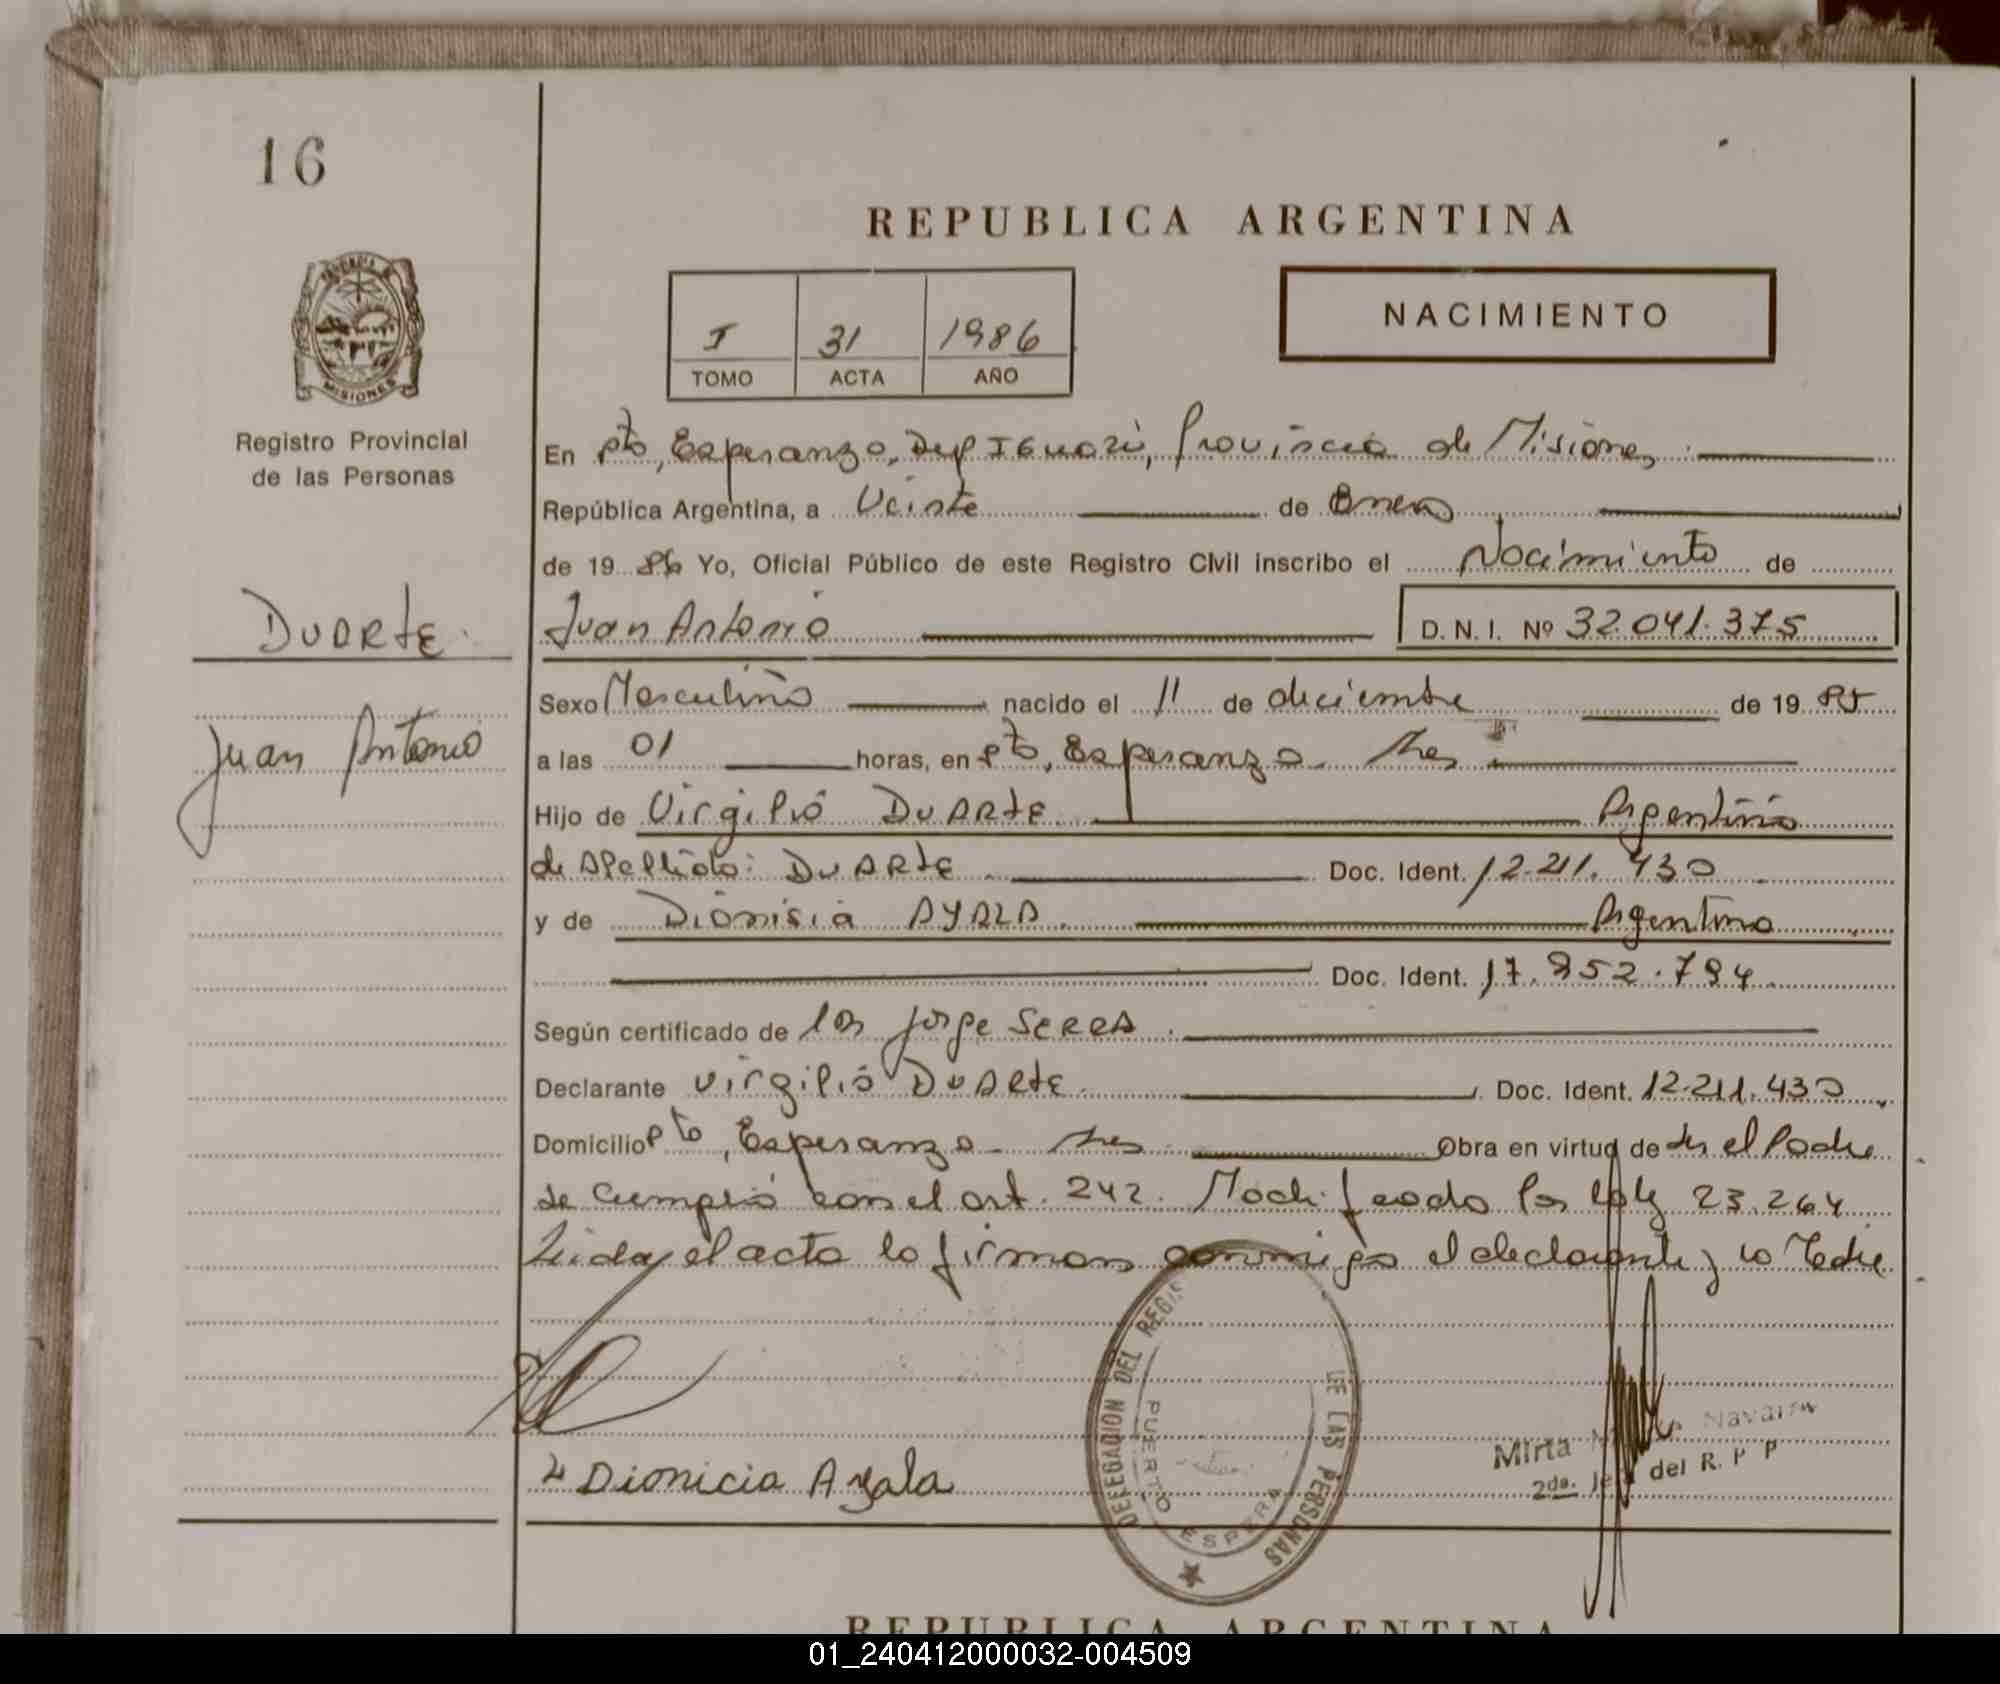 16
REPUBLICA ARGENTINA
I 31 1986
TOMO ACTA AÑO
NACIMIENTO
MISIONES
Registro Provincial
de las Personas
En Pto, Esperanza, Dep Iguazú, Provincia de Misiones
República Argentina, a Veinte de Enero
de 19 86 Yo, Oficial Público de este Registro Civil inscribo el Nacimiento de
DUARTE
Juan Antonio
Juan Antonio D. N. I. Nº 32.041.375
Sexo Masculino nacido el 11 de diciembre de 19 85
a las 01 horas, en Pto, Esperanza
Hijo de Virgilio DUARTE Argentino
de Apellido: DUARTE Doc. Ident. 12.211.430
y de Dionisia AYALA Argentina
Doc. Ident. 17.952.794
Según certificado de Jorge SERRA
Declarante Virgilio DUARTE Doc. Ident. 12.211.430
Domicilio Pto, Esperanza Obra en virtud de ser el Padre
se cumplió con el art. 242. Modificado por ley 23.264
Leida el acta la firman conmigo el declarante y la Madre
Dionicia Ayala
DELEGACION DEL REGIS DE LAS PERSONAS
PUERTO ESPERA
Mirta Navarro
2da. del R. P P
REPUBLICA ARGENTINA
01_240412000032-004509